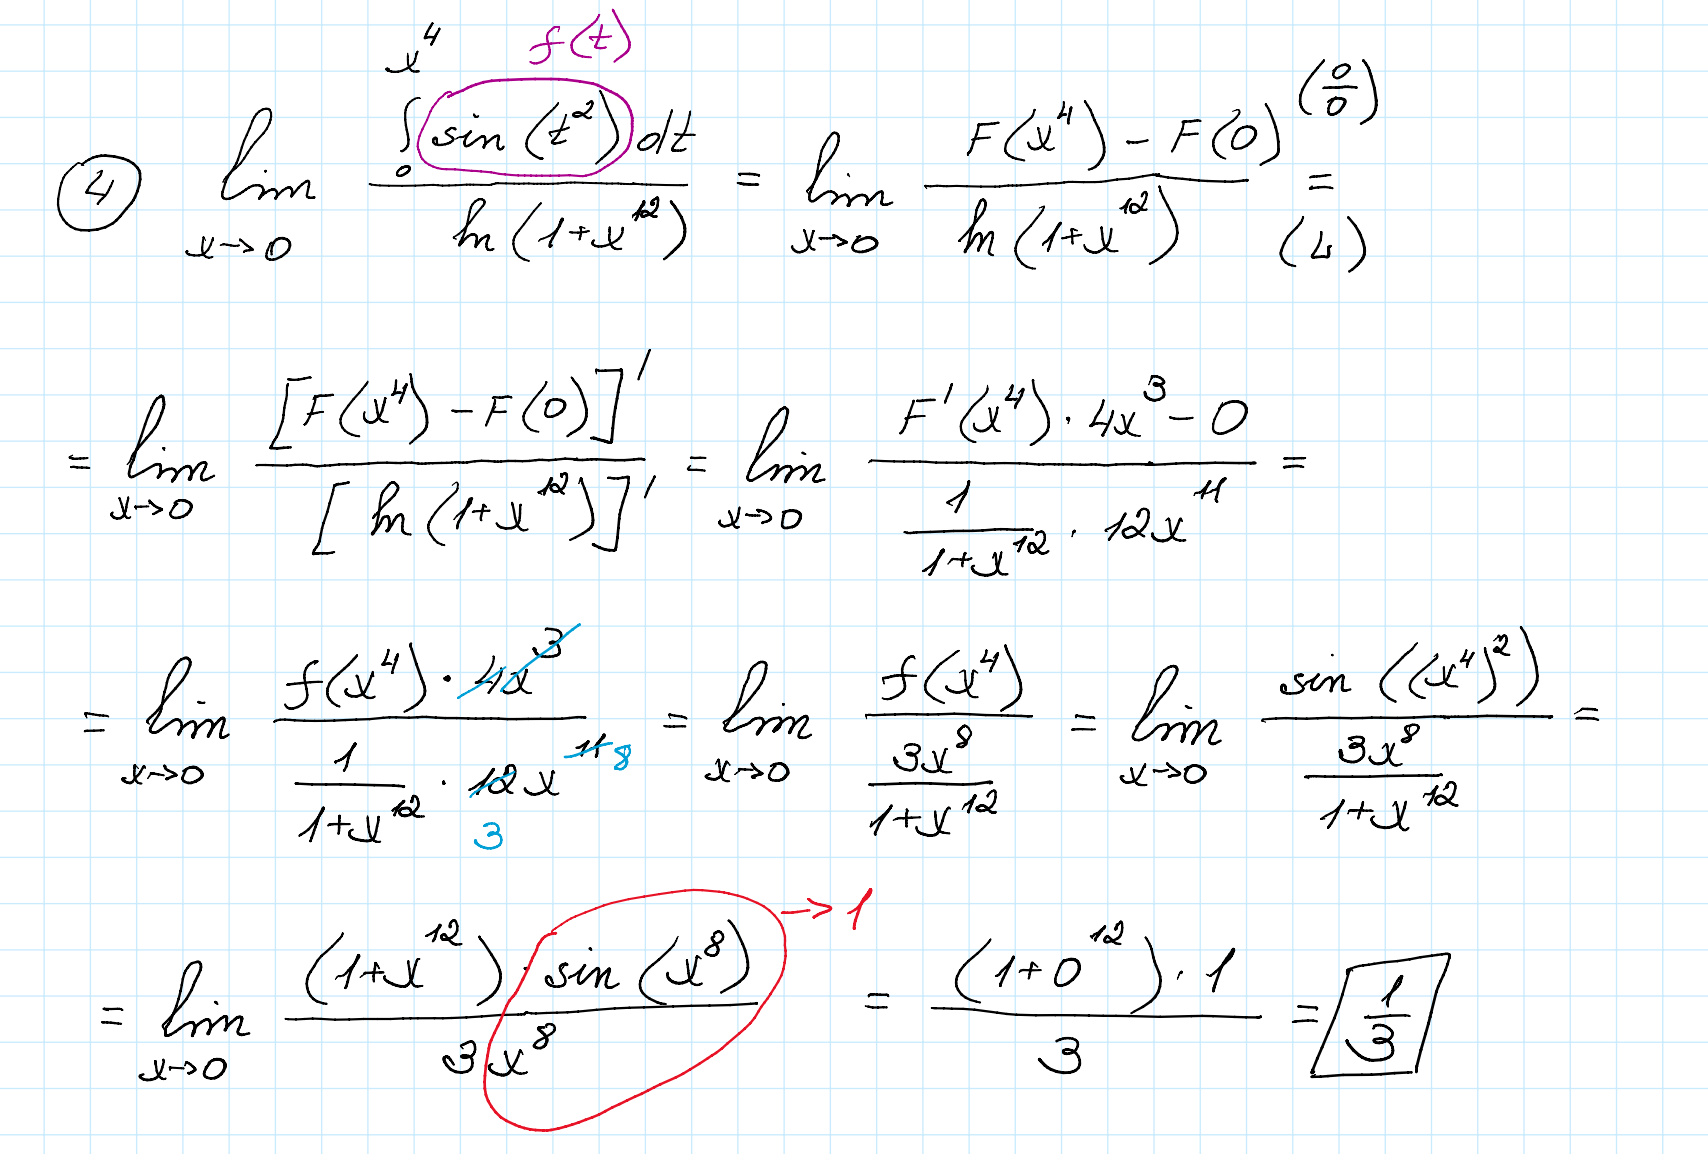 ④ lim_{x→0} \frac{\int_0^{x^4} \sin(t^2) dt}{\ln(1+x^{12})} = lim_{x→0} \frac{F(x^4) - F(0)}{\ln(1+x^{12})} (\frac{0}{0}) = (L) f(t)
= lim_{x→0} \frac{[F(x^4) - F(0)]'}{[\ln(1+x^{12})]'} = lim_{x→0} \frac{F'(x^4) · 4x^3 - 0}{\frac{1}{1+x^{12}} · 12x^{11}} =
= lim_{x→0} \frac{f(x^4) · 4x^3}{\frac{1}{1+x^{12}} · 12x^{11}} 8 3 = lim_{x→0} \frac{f(x^4)}{\frac{3x^8}{1+x^{12}}} = lim_{x→0} \frac{\sin((x^4)^2)}{\frac{3x^8}{1+x^{12}}} =
= lim_{x→0} \frac{(1+x^{12}) · \sin(x^8)}{3x^8} → 1 = \frac{(1+0^{12}) · 1}{3} = \frac{1}{3}